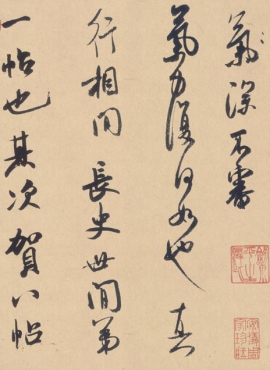 氣深不審
氣力復何如也真
行相間長史世間第
一帖也其次賀八帖